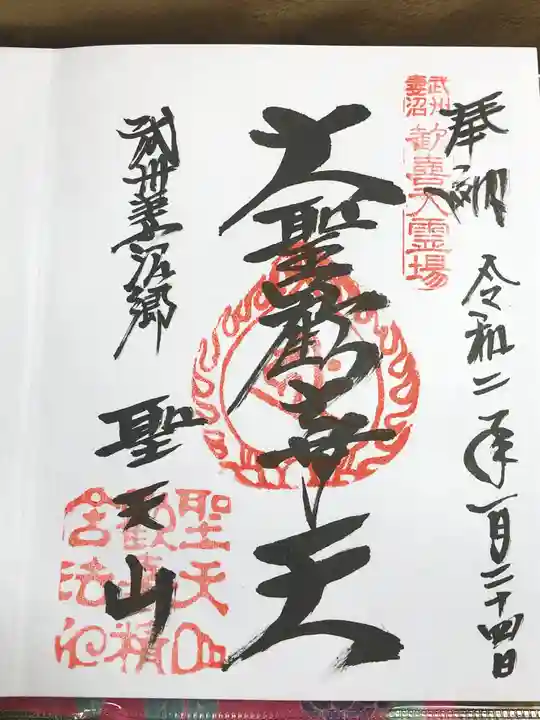 奉納
令和二年一月二十四日
武州
妻沼
歓喜天霊場
大聖歓喜天
武州妻沼郷
聖天山
聖天山
歓喜精
舎法印